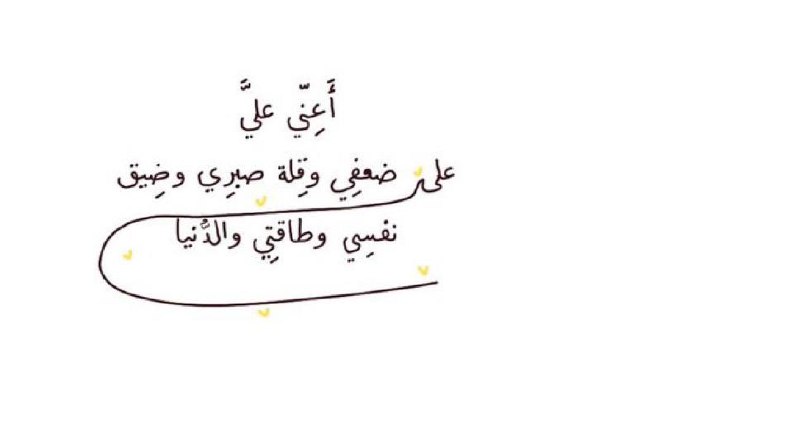 أَعِنّي عليَّ
على ضعفِي وقِلة صبرِي وضِيق
نفسِي وطاقتِي والدُّنيا